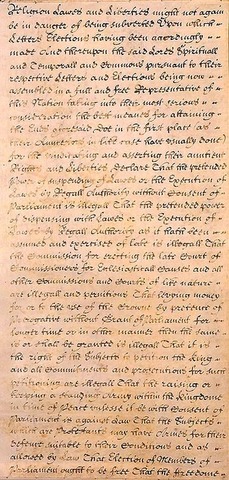 Religion Lawes and Liberties might not againe
be in danger of being subverted Upon which
Letters Elections having been accordingly
made And thereupon the said Lords Spirituall
and Temporall and Commons pursuant to their
respective Letters and Elections being now
Assembled in a full and free Representative of
this Nation taking into their most serious
consideration the best meanes for attaining
the Ends aforesaid Doe in the first place as
their Auncestors in like case have usually done
for the vindicating and asserting their auntient
Rights and Liberties, Declare That the pretended
Power of suspending of Lawes or the Execution of
Lawes by Regall Authority without Consent of
Parliament is illegall That the pretended power
of dispensing with Lawes or the Execution of
Lawes by Regall Authority as it hath been
assumed and exercised of late is illegall That
the Commission for erecting the late Court of
Commissioners for Ecclesiasticall Causes and all
other Commissions and Courts of like nature
are illegall and pernitious That levying money
for or to the use of the Crowne by pretence of
Prerogative without Grant of Parliament for
longer time or in other manner then the same
is or shall be granted is illegall That it is
the right of the Subjects to petition the King
and all Commitments and prosecutions for such
petitioning are illegall That the raising or
keeping a standing Army within the Kingdome
in time of Peace unlesse it be with Consent of
Parliament is against Law That the Subjects
which are Protestants may have Armes for their
defence suitable to their Conditions and as
allowed by Law That Election of Members of
Parliament ought to be free That the freedome